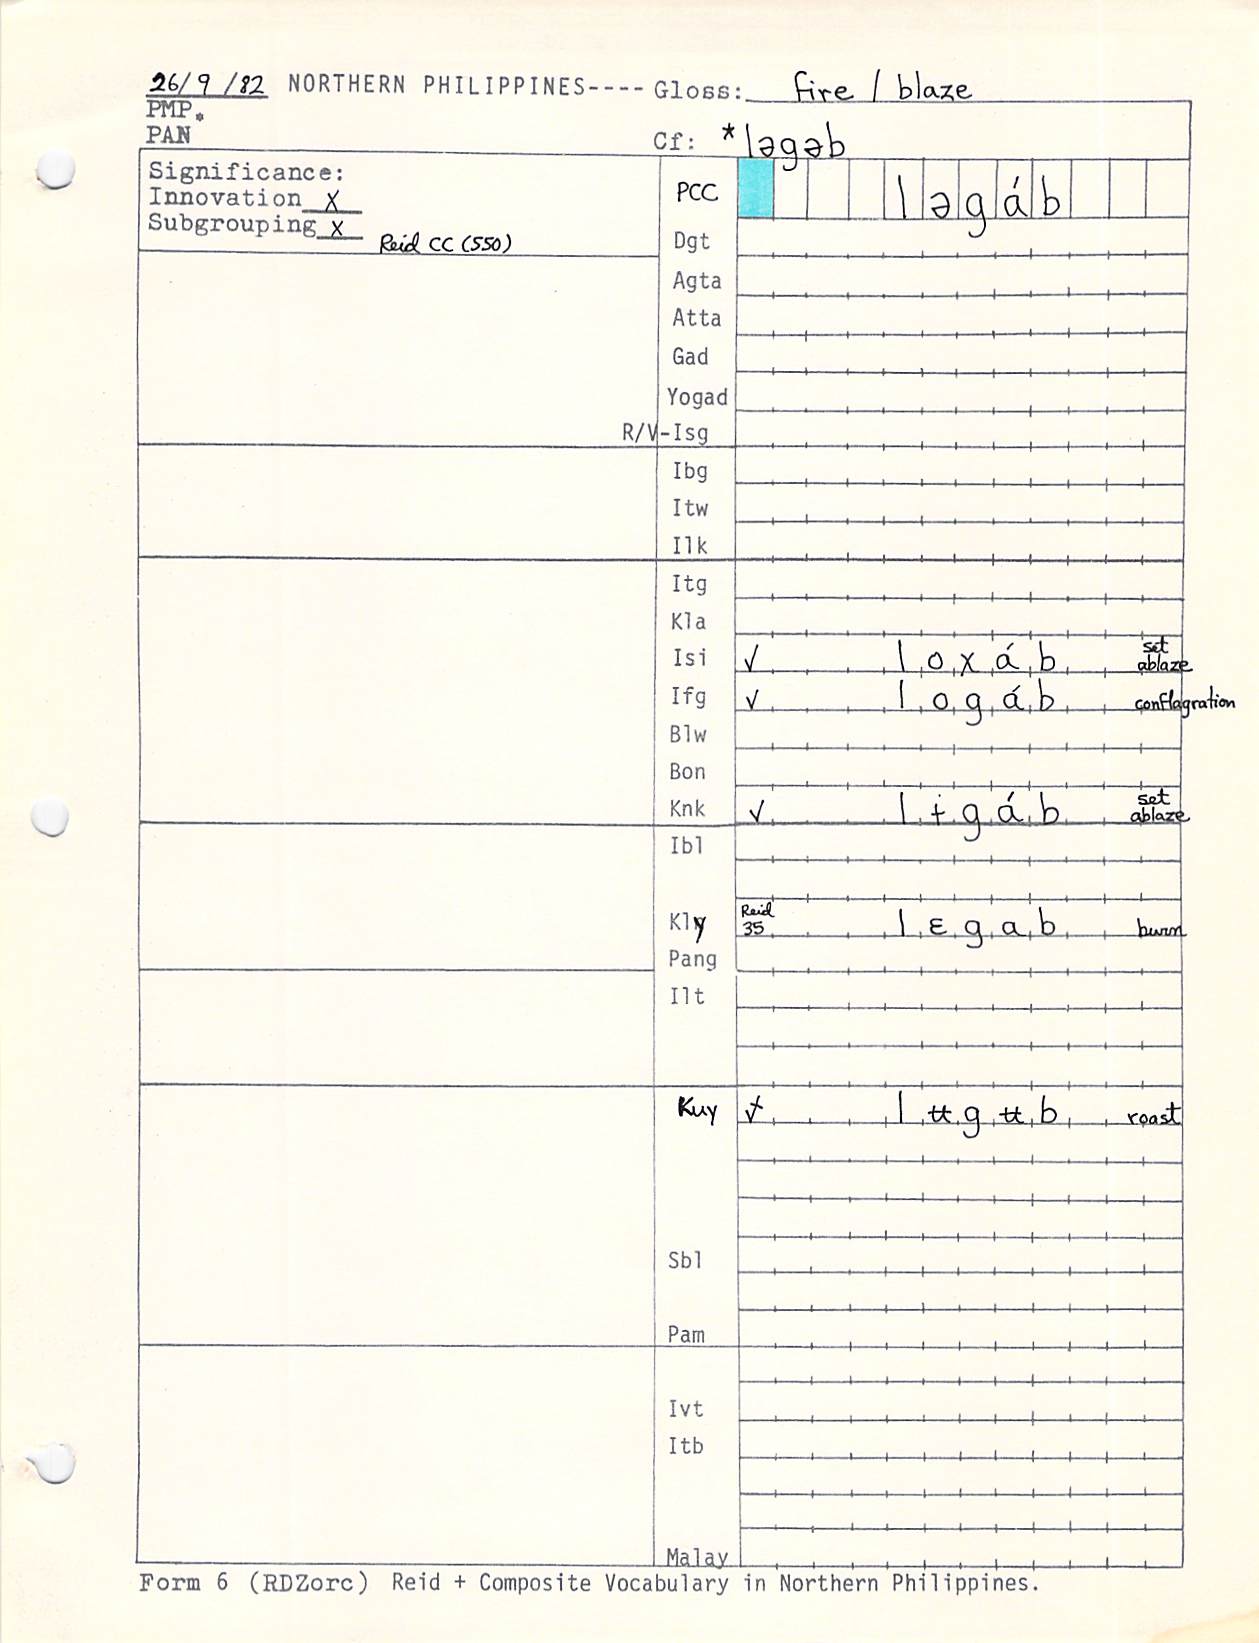 26/9/82 NORTHERN PHILIPPINES---- Gloss: fire / blaze
PMP.
PAN Cf: *ləgəb
Significance: PCC ləgáb
Innovation X
Subgrouping X Reid CC (550)
Dgt
Agta
Atta
Gad
Yogad
R/V-Isg
Ibg
Itw
Ilk
Itg
Kla
Isi ✓ loxáb set ablaze
Ifg ✓ logáb conflagration
Blw
Bon
Knk ✓ lɨgáb set ablaze
Ibl
Kly Reid 35 lɛgab burn
Pang
Ilt
Kuy lʉgʉb roast
Sbl
Pam
Ivt
Itb
Malay
Form 6 (RDZorc) Reid + Composite Vocabulary in Northern Philippines.